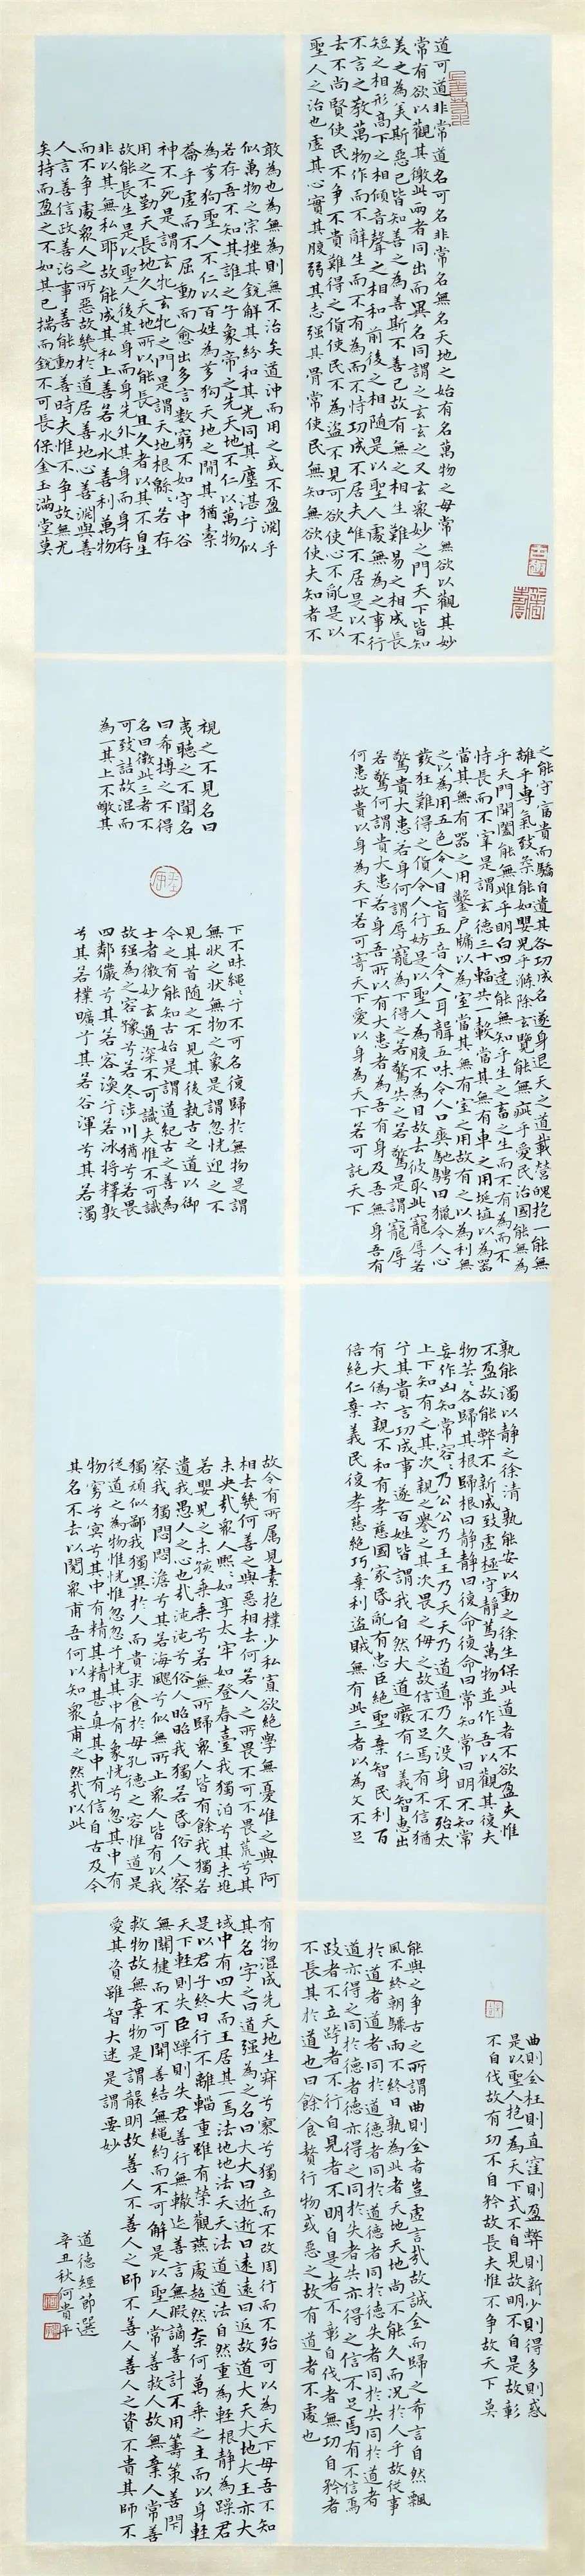 道可道非常道名可名非常名無名天地之始有名萬物之母常無欲以觀其妙
常有欲以觀其徼此兩者同出而異名同謂之玄玄之又玄眾妙之門天下皆知
美之為美斯惡已皆知善之為善斯不善已故有無之相生難易之相成長
短之相形高下之相傾音聲之相和前後之相隨是以聖人處無為之事行
不言之教萬物作而不辭生而不有為而不恃功成不居夫唯不居是以不
去不尚賢使民不爭不貴難得之貨使民不為盜不見可欲使心不亂是以
聖人之治也虛其心實其腹弱其志强其骨常使民無知無欲使夫知者不
敢為也為無為則無不治矣道沖而用之或不盈淵乎
似萬物之宗挫其銳解其紛和其光同其塵湛乎似
若存吾不知其誰之子象帝之先天地不仁以萬物
為芻狗聖人不仁以百姓為芻狗天地之間其猶橐
籥乎虛而不屈動而愈出多言數窮不如守中谷
神不死是謂玄牝玄牝之門是謂天地根緜緜若存
用之不勤天長地久天地所以能長且久者以其不自生
故能長生是以聖人後其身而身先外其身而身存
非以其無私耶故能成其私上善若水水善利萬物
而不爭處眾人之所惡故幾於道居善地心善淵與善
人言善信政善治事善能動善時夫惟不爭故無尤
矣持而盈之不如其已揣而銳不可長保金玉滿堂莫
之能守富貴而驕自遺其咎功成名遂身退天之道載營魄抱一能無
離乎專氣致柔能如嬰兒乎滌除玄覽能無疵乎愛民治國能無為
乎天門開闔能無雌乎明白四達能無知乎生之畜之生而不有為而不
恃長而不宰是謂玄德三十輻共一轂當其無有車之用埏埴以為器
當其無有器之用鑿戶牖以為室當其無有室之用故有之以為利無
之以為用五色令人目盲五音令人耳聾五味令人口爽馳騁田獵令人心
發狂難得之貨令人行妨是以聖人為腹不為目故去彼取此寵辱若
驚貴大患若身何謂辱寵為下得之若驚失之若驚是謂寵辱
若驚何謂貴大患若身吾所以有大患者為吾有身及吾無身吾有
何患故貴以身為天下若可寄天下愛以身為天下若可託天下
視之不見名曰
夷聽之不聞名
曰希搏之不得
名曰微此三者不
可致詰故混而
為一其上不皦其
下不昧繩繩兮不可名復歸於無物是謂
無狀之狀無物之象是謂忽恍迎之不
見其首隨之不見其後執古之道以御
今之有能知古始是謂道紀古之善為
士者微妙玄通深不可識夫惟不可識
故强為之容豫兮若冬涉川猶兮若畏
四鄰儼兮其若容渙兮若冰將釋敦
兮其若樸曠兮其若谷渾兮其若濁
孰能濁以靜之徐清孰能安以動之徐生保此道者不欲盈夫惟
不盈故能弊不新成致虛極守靜篤萬物並作吾以觀其復夫
物芸芸各歸其根歸根曰靜靜曰復命復命曰常知常曰明不知常
妄作凶知常容容乃公公乃王王乃天天乃道道乃久沒身不殆太
上下知有之其次親之譽之其次畏之侮之故信不足焉有不信猶
兮其貴言功成事遂百姓皆謂我自然大道廢有仁義智惠出
有大偽六親不和有孝慈國家昏亂有忠臣絕聖棄智民利百
倍絕仁棄義民復孝慈絕巧棄利盜賊無有此三者以為文不足
故令有所屬見素抱樸少私寡欲絕學無憂唯之與阿
相去幾何善之與惡相去何若人之所畏不可不畏荒兮其
未央哉眾人熙熙如享太牢如登春臺我獨泊兮其未兆
若嬰兒之未孩乘乘兮若無所歸眾人皆有餘我獨若
遺我愚人之心也哉沌沌兮俗人昭昭我獨若昏俗人察
察我獨悶悶澹兮其若海飂兮似無所止眾人皆有以我
獨頑似鄙我獨異於人而貴求食於母孔德之容惟道是
從道之為物惟恍惟忽忽兮恍其中有象恍兮忽其中有
物窈兮冥兮其中有精其精甚真其中有信自古及今
其名不去以閱眾甫吾何以知眾甫之然哉以此
曲則全枉則直窪則盈弊則新少則得多則惑
是以聖人抱一為天下式不自見故明不自是故彰
不自伐故有功不自矜故長夫惟不爭故天下莫
能與之爭古之所謂曲則全者豈虛言哉故誠全而歸之希言自然飄
風不終朝驟雨不終日孰為此者天地天地尚不能久而況於人乎故從事
於道者道者同於道德者同於德失者同於失同於道者
道亦得之同於德者德亦得之同於失者失亦得之信不足焉有不信焉
跂者不立跨者不行自見者不明自是者不彰自伐者無功自矜者
不長其於道也曰餘食贅行物或惡之故有道者不處也
有物混成先天地生寂兮寥兮獨立而不改周行而不殆可以為天下母吾不知
其名字之曰道强為之名曰大大曰逝逝曰遠遠曰返故道大天大地大王亦大
域中有四大而王居其一焉法地地法天天法道道法自然重為輕根靜為躁君
是以君子終日行不離輜重雖有榮觀燕處超然柰何萬乘之主而以身輕
天下輕則失臣躁則失君善行無轍迹善言無瑕謫善計不用籌策善閉
無關楗而不可開善結無繩約而不可解是以聖人常善救人故無棄人常善
救物故無棄物是謂襲明故善人不善人之師不善人善人之資不貴其師不
愛其資雖智大迷是謂要妙
道德經節選
辛丑秋何貴平